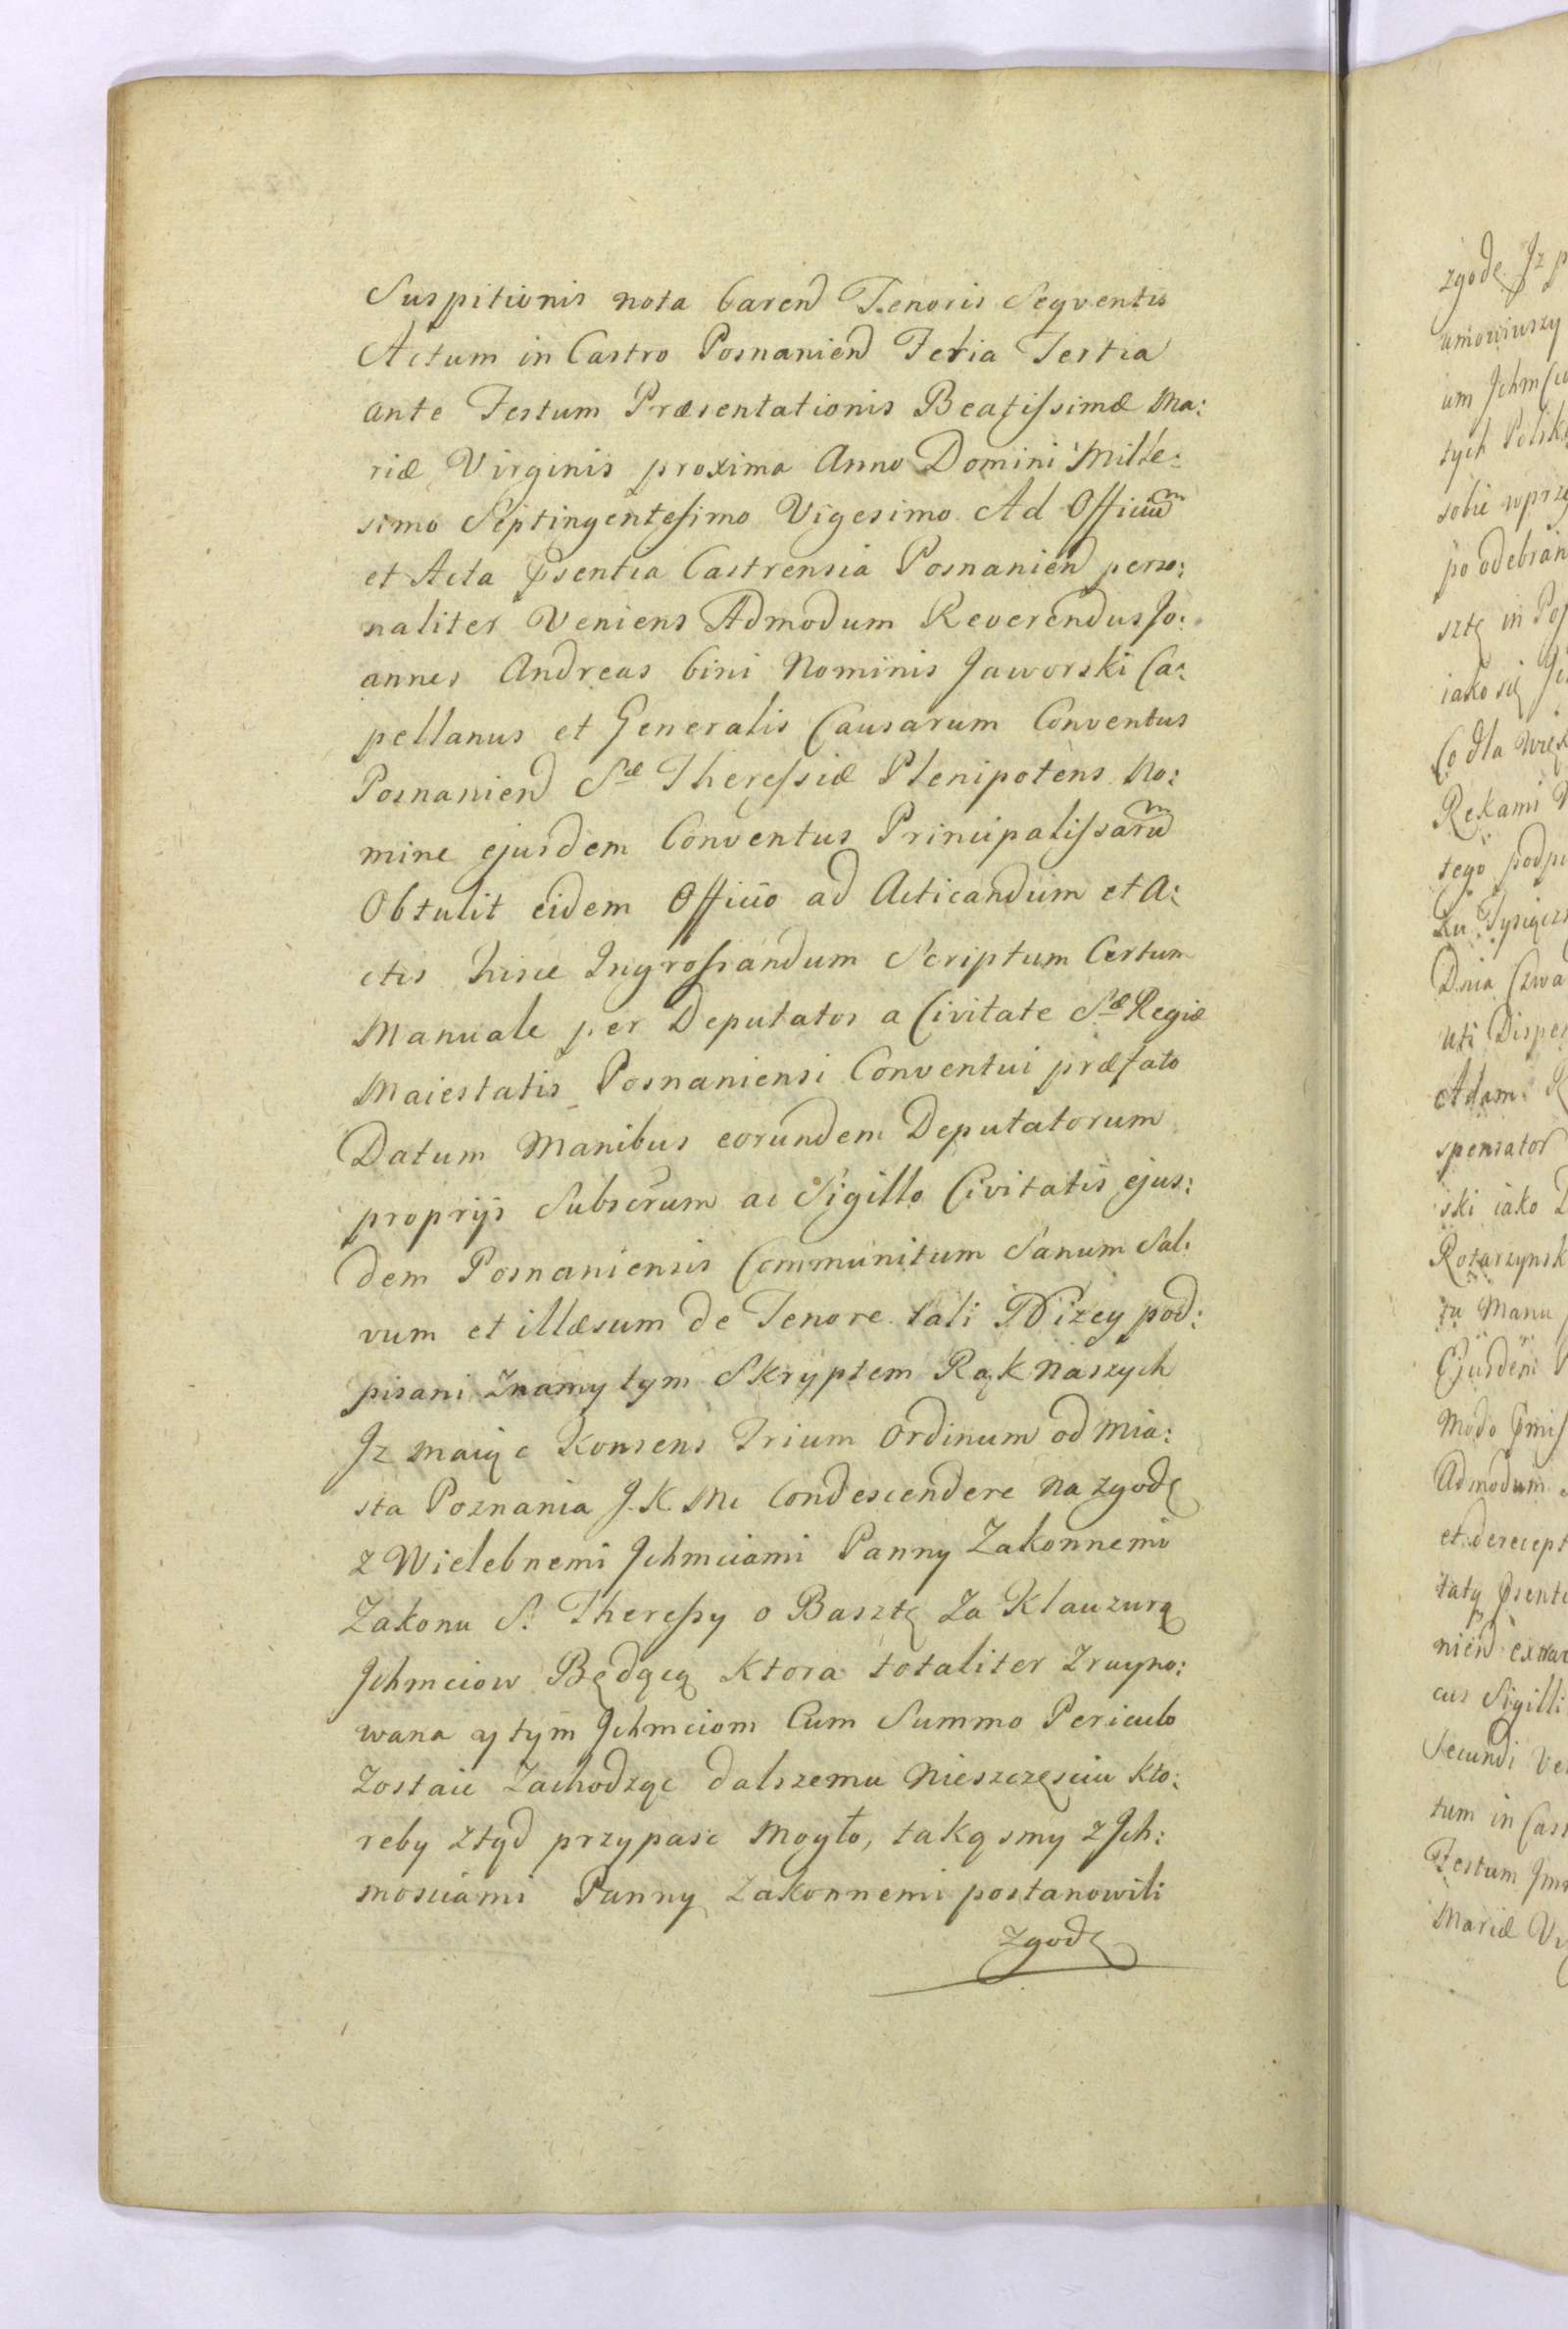 Suspitionis nota caren Tenoris Seqventis
Actum in Castro Posnanien Feria Tertia
ante Festum Præsentationis Beatissimæ Ma:
riæ Virginis proxima Anno Domini Mille:
simo Septingentesimo Vigesimo Ad Officium
et Acta Psentia Castrensia Posnanien perso:
naliter Veniens Admodum Reverendus Jo:
annes Andreas bini Nominis Jaworski Ca:
pellanus et Generalis Causarum Conventus
Posnanien Sæ Theressiæ Plenipotens No:
mine ejusdem Conventus Principalissarum
Obtulit eidem Officio ad Acticandum et A:
ctis hisce Ingrossandum Scriptum Certum
Manuale per Deputatos a Civitate Sæ Regiæ
Maiestatis Posnaniensi Conventui præfato
Datum Manibus eorundem Deputatorum
proprijs Subscrum ac Sigillo Civitatis ejus:
dem Posnaniensis Communitum Sanum Sal:
vum et illæsum de Tenore tali Nizey pod:
pisani Znamy tym Skryptem Rąk Naszych
Jz maiąc Konsens Trium Ordinum od Mia:
sta Poznania J. K. Mci Condescendere na zgodę
z Wielebnemi Jchmciami Panny Zakonnemi
Zakonu S. Theressy o Basztę Za Klauzurą
Jchmciow Będącą Ktora totaliter Zruyno:
wana y tym Jchmciom Cum Summo Periculo
Zostaie Zachodząc dalszemu Nieszczęsciu Kto:
reby ztąd przypasc Mogło, taką smy z Jch:
mosciami Panny Zakonnemi postanowili
Zgodę
zgodę Jz
umowiwszy
um
tych
sobie
po odebran
sztę in
iako się
Co dla
Rekami
tego
Ku
Dnia
Uti
Adam
spensator
ski iako
Rotarzynsk
zu Manu
Ejusdem
Modo
Admodum
et
nien
cus Sigilli
Secundi
tum in
Festum
Mariæ